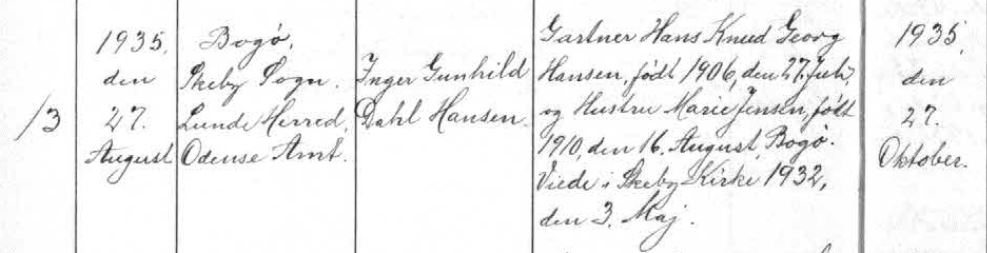 13
1935.
den
27.
August
Bogø.
Skeby Sogn.
Lunde Herred.
Odense Amt.
Inger Gunhild
Dahl Hansen.
Gartner Hans Knud Georg
Hansen, født 1906, den 27. Juli,
og Hustru Marie Jensen, født
1910, den 16. August, Bogø.
Viede i Skeby Kirke 1932,
den 3. Maj.
1935.
den
27.
Oktober.